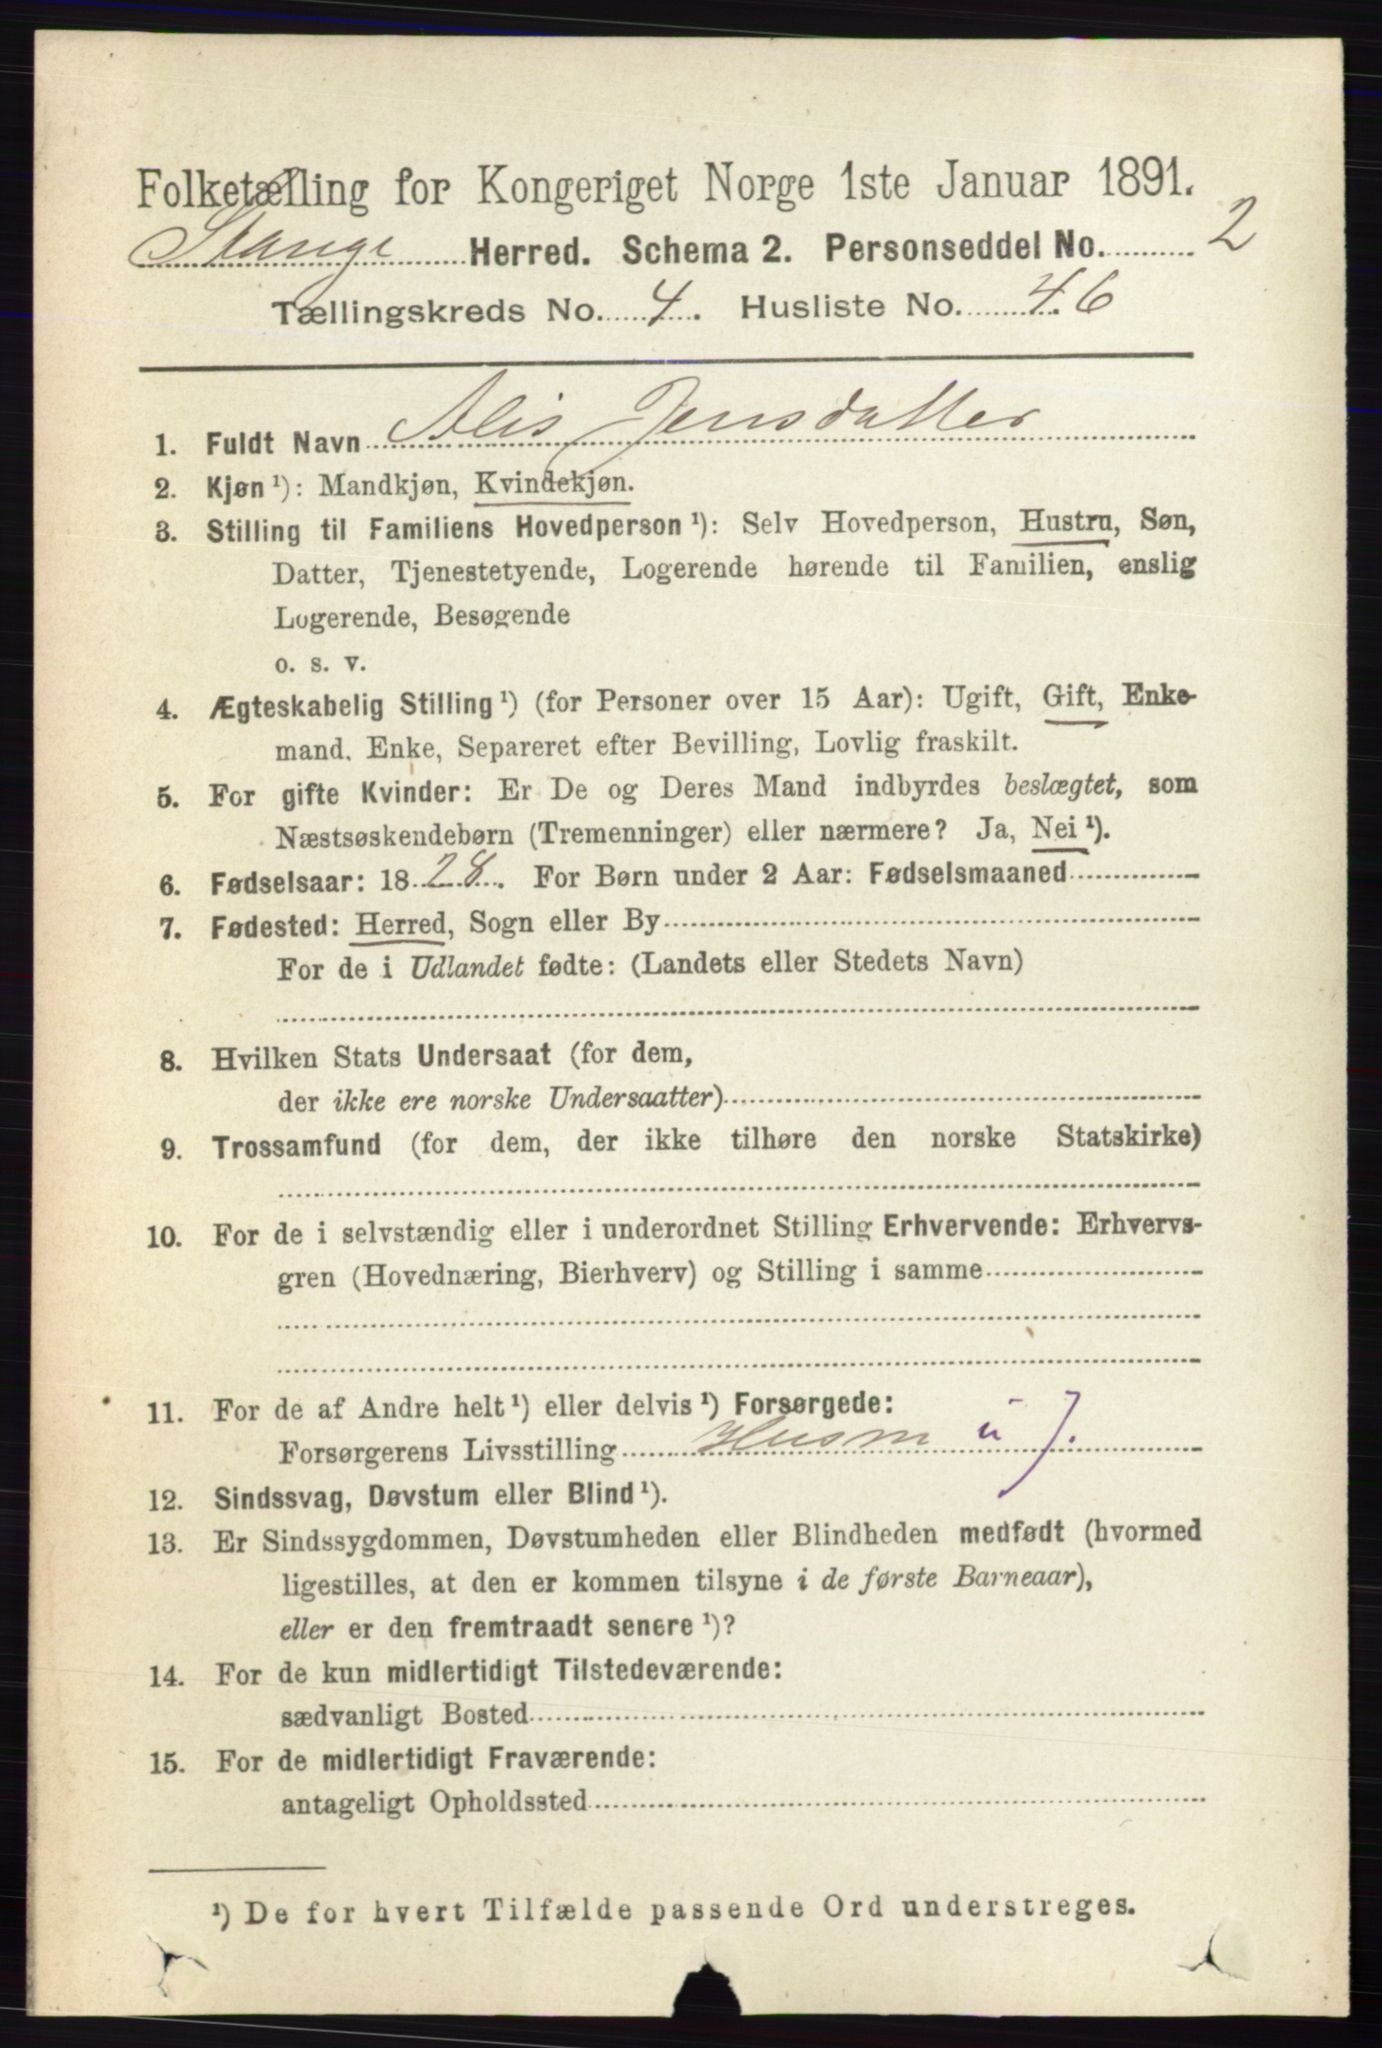 Folketælling for Kongeriget Norge 1ste Januar 1891.
Stange Herred. Schema 2. Personseddel No. 2
Tællingskreds No. 4. Husliste No. 46
1. Fuldt Navn Alis Jensdatter
2. Kjøn ¹): Mandkjøn, Kvindekjøn.
3. Stilling til Familiens Hovedperson ¹): Selv Hovedperson, Hustru, Søn,
Datter, Tjenestetyende, Logerende hørende til Familien, enslig
Logerende, Besøgende
o. s. v.
4. Ægteskabelig Stilling ¹) (for Personer over 15 Aar): Ugift, Gift, Enke-
mand, Enke, Separeret efter Bevilling, Lovlig fraskilt.
5. For gifte Kvinder: Er De og Deres Mand indbyrdes beslægtet, som
Næstsøskendebørn (Tremenninger) eller nærmere? Ja, Nei ¹).
6. Fødselsaar: 1828. For Børn under 2 Aar: Fødselsmaaned
7. Fødested: Herred, Sogn eller By
For de i Udlandet fødte: (Landets eller Stedets Navn)
8. Hvilken Stats Undersaat (for dem,
der ikke ere norske Undersaatter)
9. Trossamfund (for dem, der ikke tilhøre den norske Statskirke)
10. For de i selvstændig eller i underordnet Stilling Erhvervende: Erhvervs-
gren (Hovednæring, Bierhverv) og Stilling i samme
11. For de af Andre helt ¹) eller delvis ¹) Forsørgede:
Forsørgerens Livsstilling Husm u J.
12. Sindssvag, Døvstum eller Blind ¹).
13. Er Sindssygdommen, Døvstumheden eller Blindheden medfødt (hvormed
ligestilles, at den er kommen tilsyne i de første Barneaar),
eller er den fremtraadt senere ¹)?
14. For de kun midlertidigt Tilstedeværende:
sædvanligt Bosted
15. For de midlertidigt Fraværende:
antageligt Opholdssted
¹) De for hvert Tilfælde passende Ord understreges.